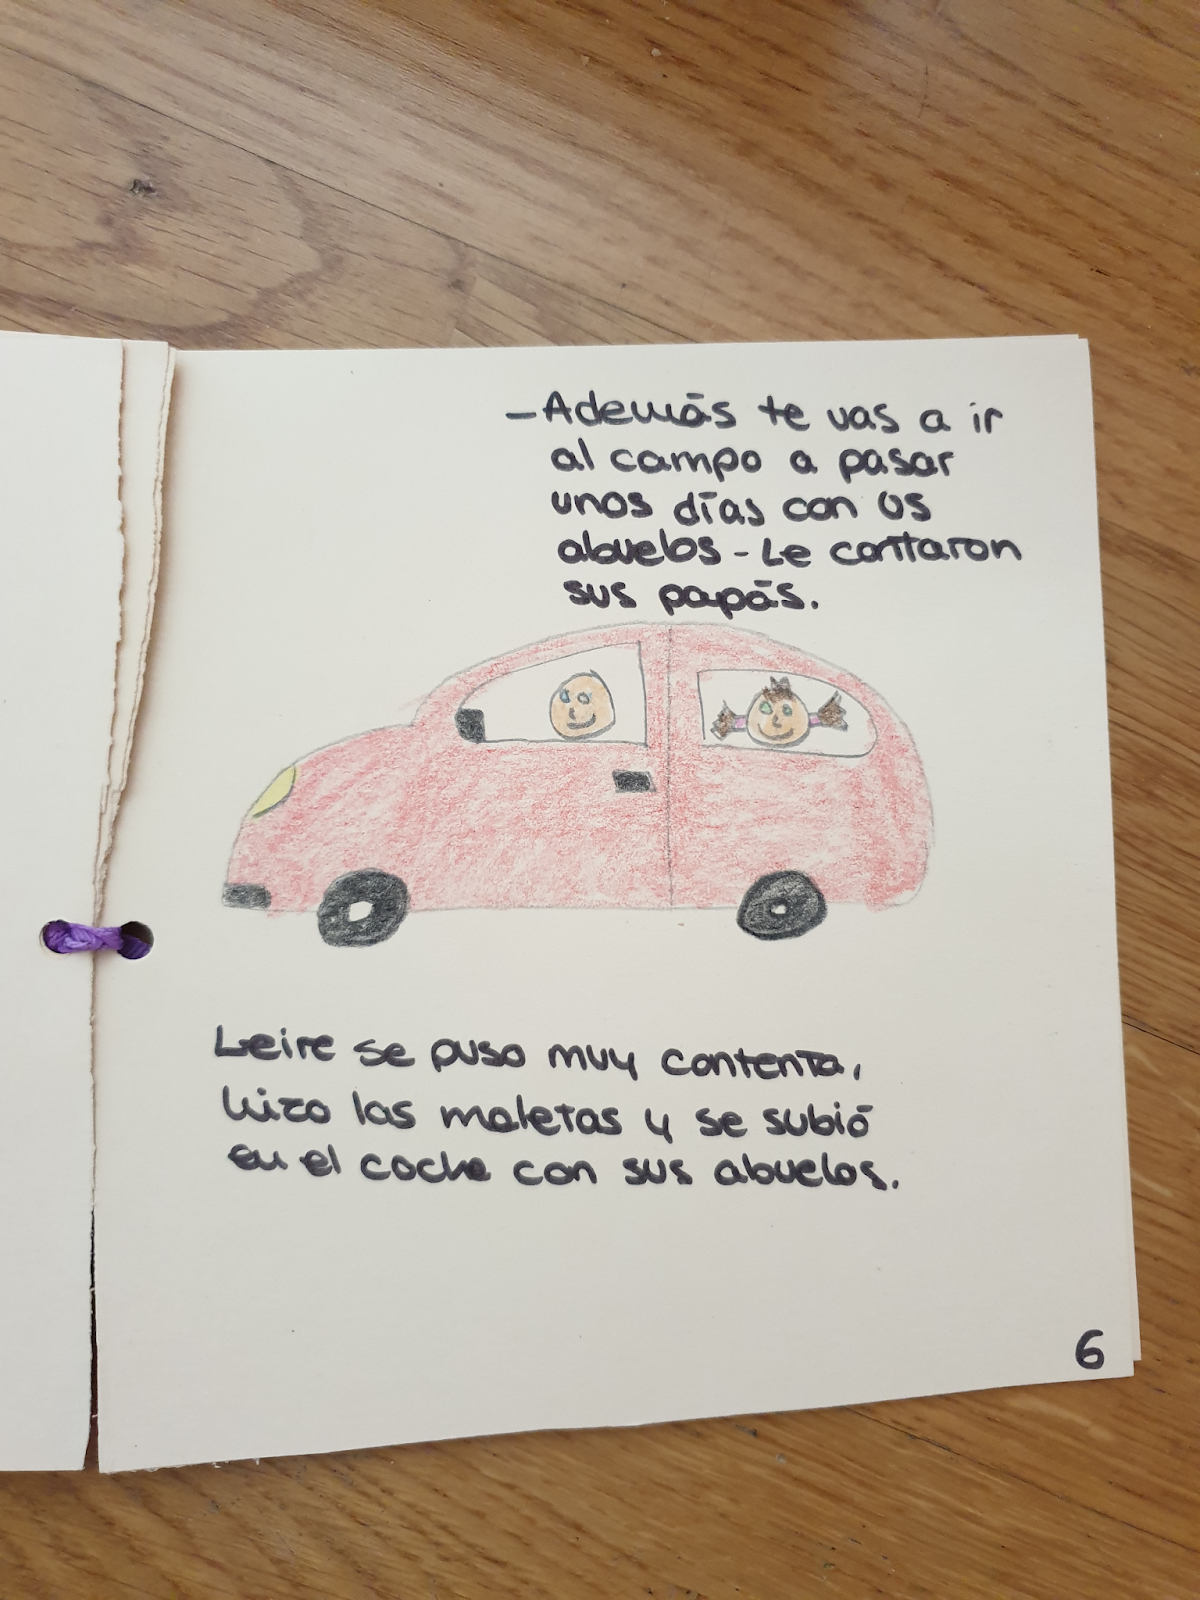 -Además te vas a ir
al campo a pasar
unos días con us
abuelos - Le contaron
sus papás.
Leire se puso muy contenta,
hizo las maletas y se subió
en el coche con sus abuelos.
6